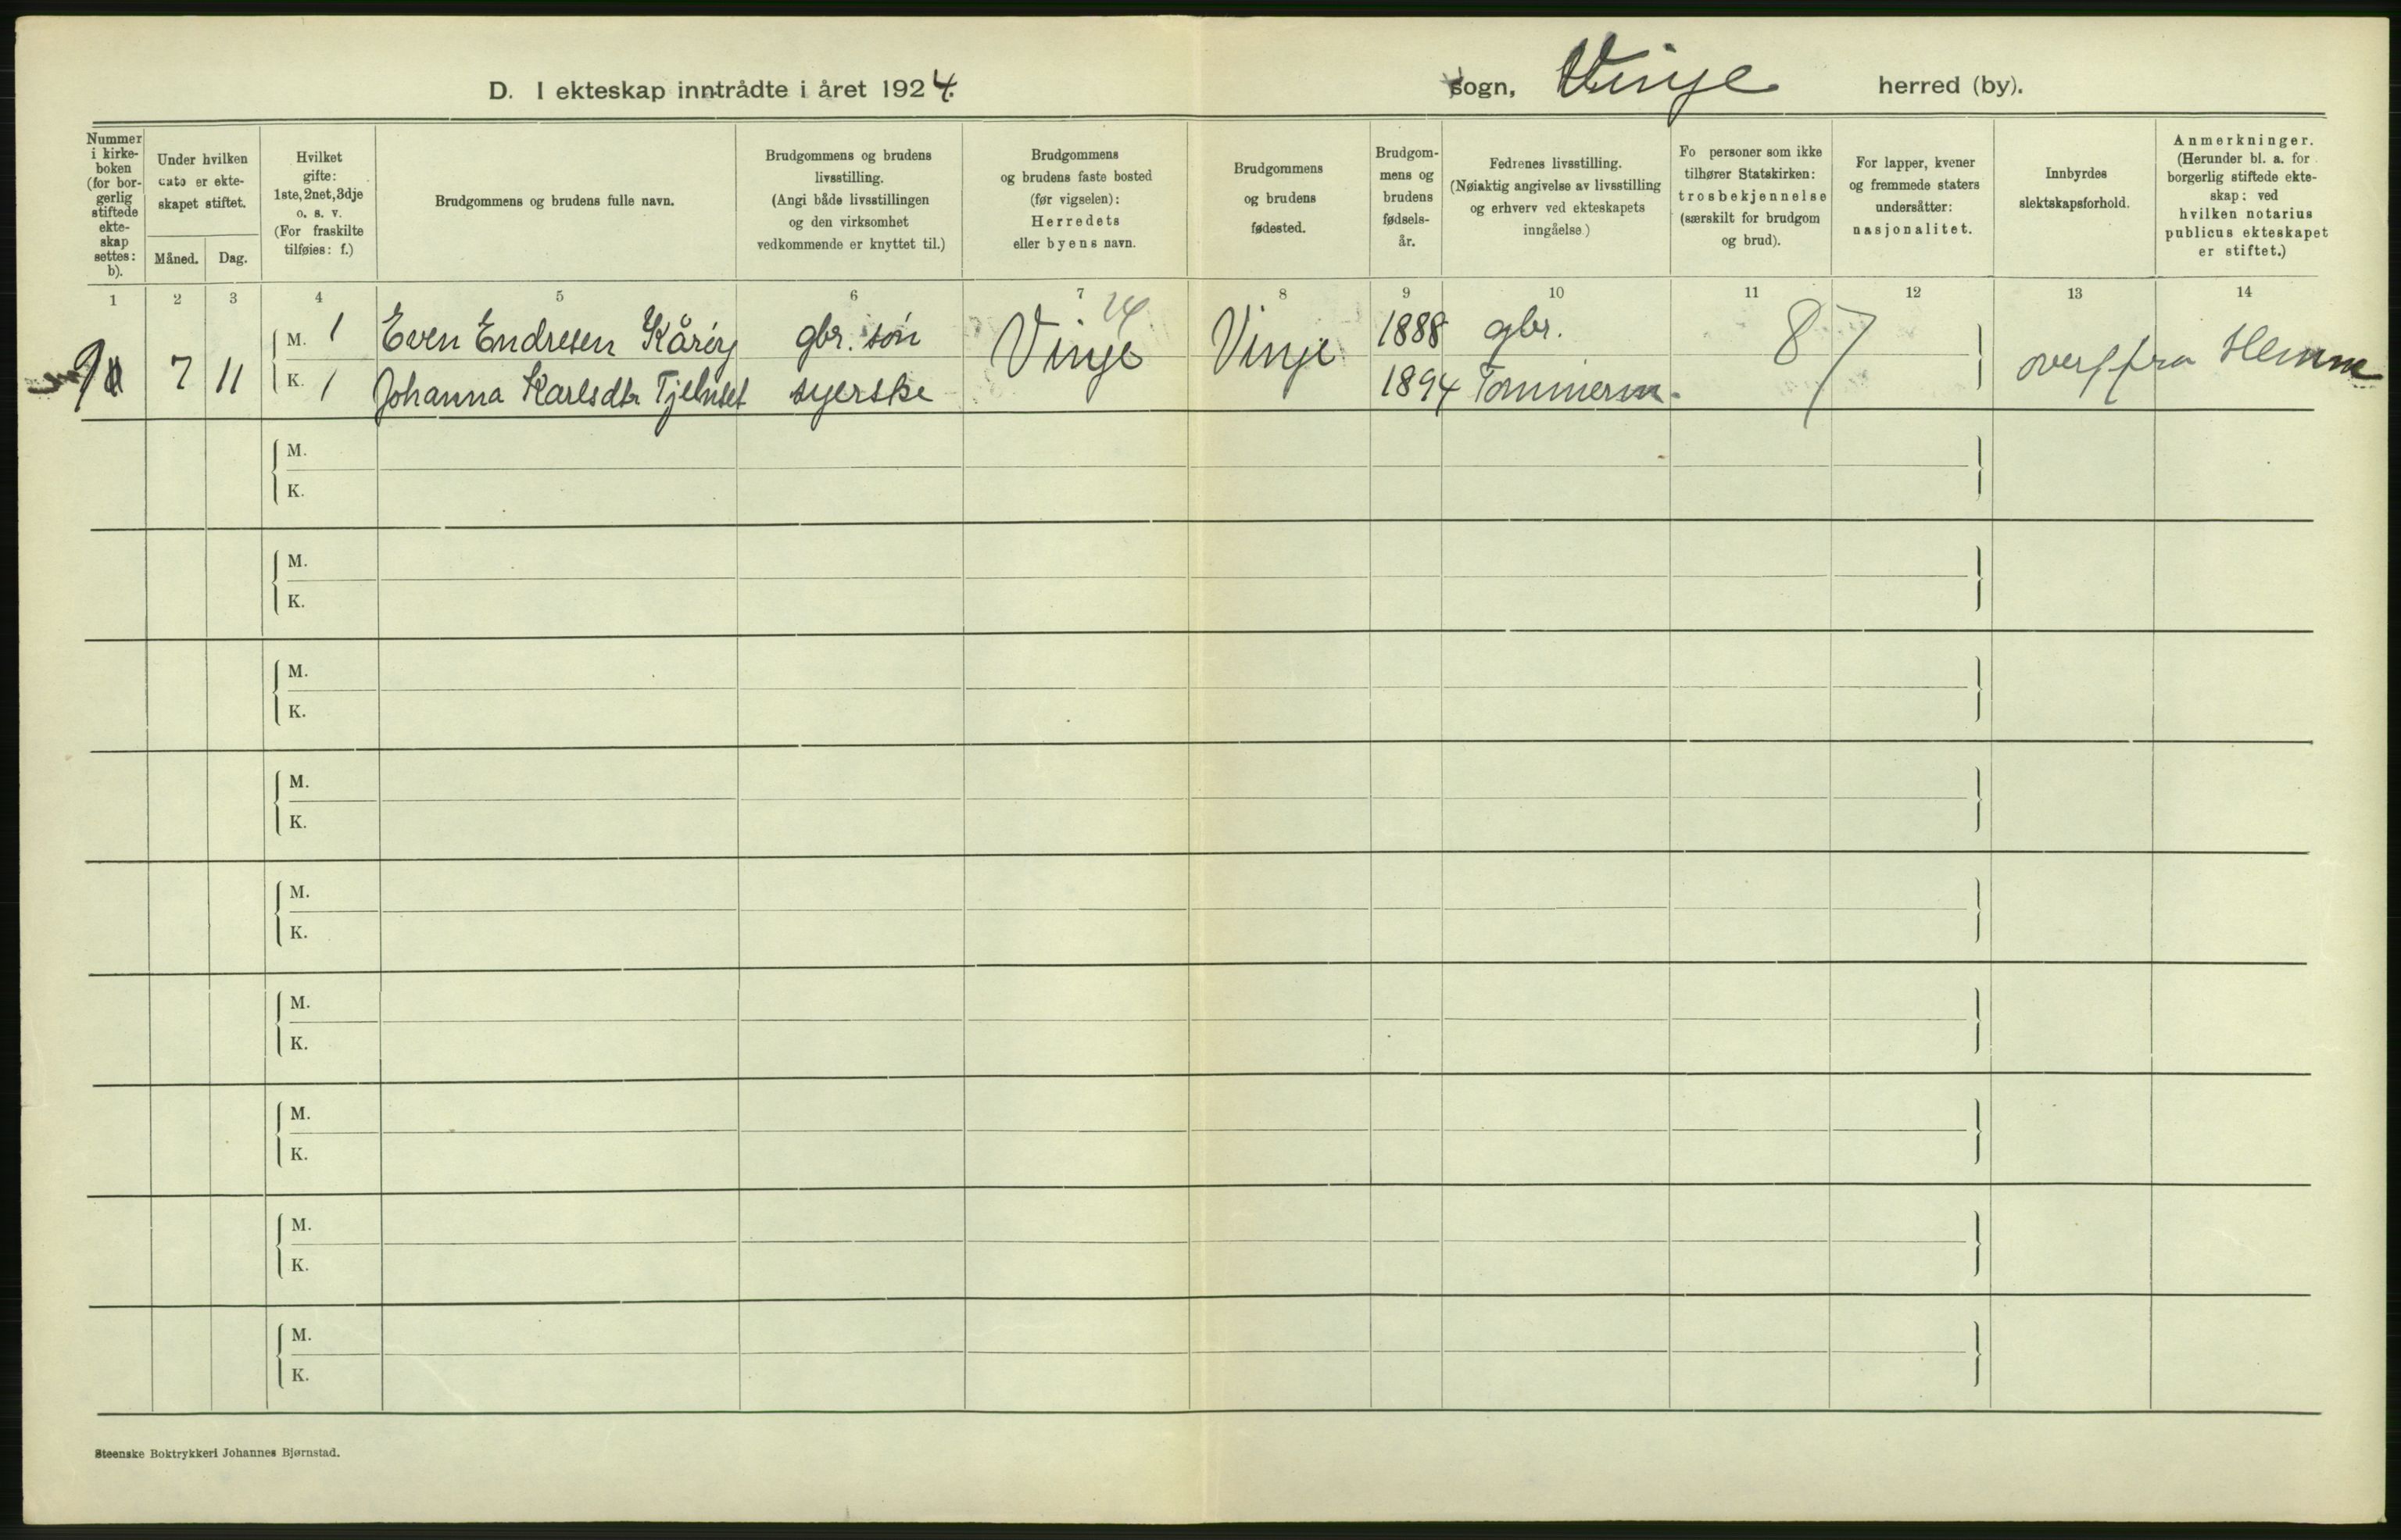 D. I ekteskap inntrådte i året 1924.
sogn, Vinje herred (by).
Nummer i kirke- boken (for bor- gerlig stiftede ekte- skap settes: b).
Under hvilken dato er ekte- skapet stiftet.
Måned. Dag.
Hvilket gifte: 1ste, 2net, 3dje o. s. v. (For fraskilte tilføies: f.)
Brudgommens og brudens fulle navn.
Brudgommens og brudens livsstilling. (Angi både livsstillingen og den virksomhet vedkommende er knyttet til.)
Brudgommens og brudens faste bosted (før vigselen): Herredets eller byens navn.
Brudgommens og brudens fødested.
Brudgom- mens og brudens fødsels- år.
Fedrenes livsstilling. (Nøiaktig angivelse av livsstilling og erhverv ved ekteskapets inngåelse.)
Fo personer som ikke tilhører Statskirken: trosbekjennelse (særskilt for brudgom og brud).
For lapper, kvener og fremmede staters undersåtter: nasjonalitet.
Innbyrdes slektskapsforhold.
Anmerkninger. (Herunder bl. a. for borgerlig stiftede ekte- skap: ved hvilken notarius publicus ekteskapet er stiftet.)
1 2 3 4 5 6 7 8 9 10 11 12 13 14
9 7 11 M. 1 Even Endresen Kårøy gbr. søn Vinje Vinje 1888 gbr. 87 overf fra Hemne
K. 1 Johanna Karlsdtr syerske 1894 Tømmerm.
M.
K.
M.
K.
M.
K.
M.
K.
M.
K.
M.
K.
M.
K.
M.
K.
M.
K.
Steenske Boktrykkeri Johannes Bjørnstad.